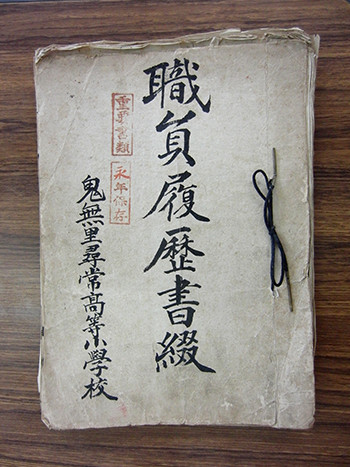 職員履歴書綴
重要書類
永年保存
鬼無里尋常高等小學校